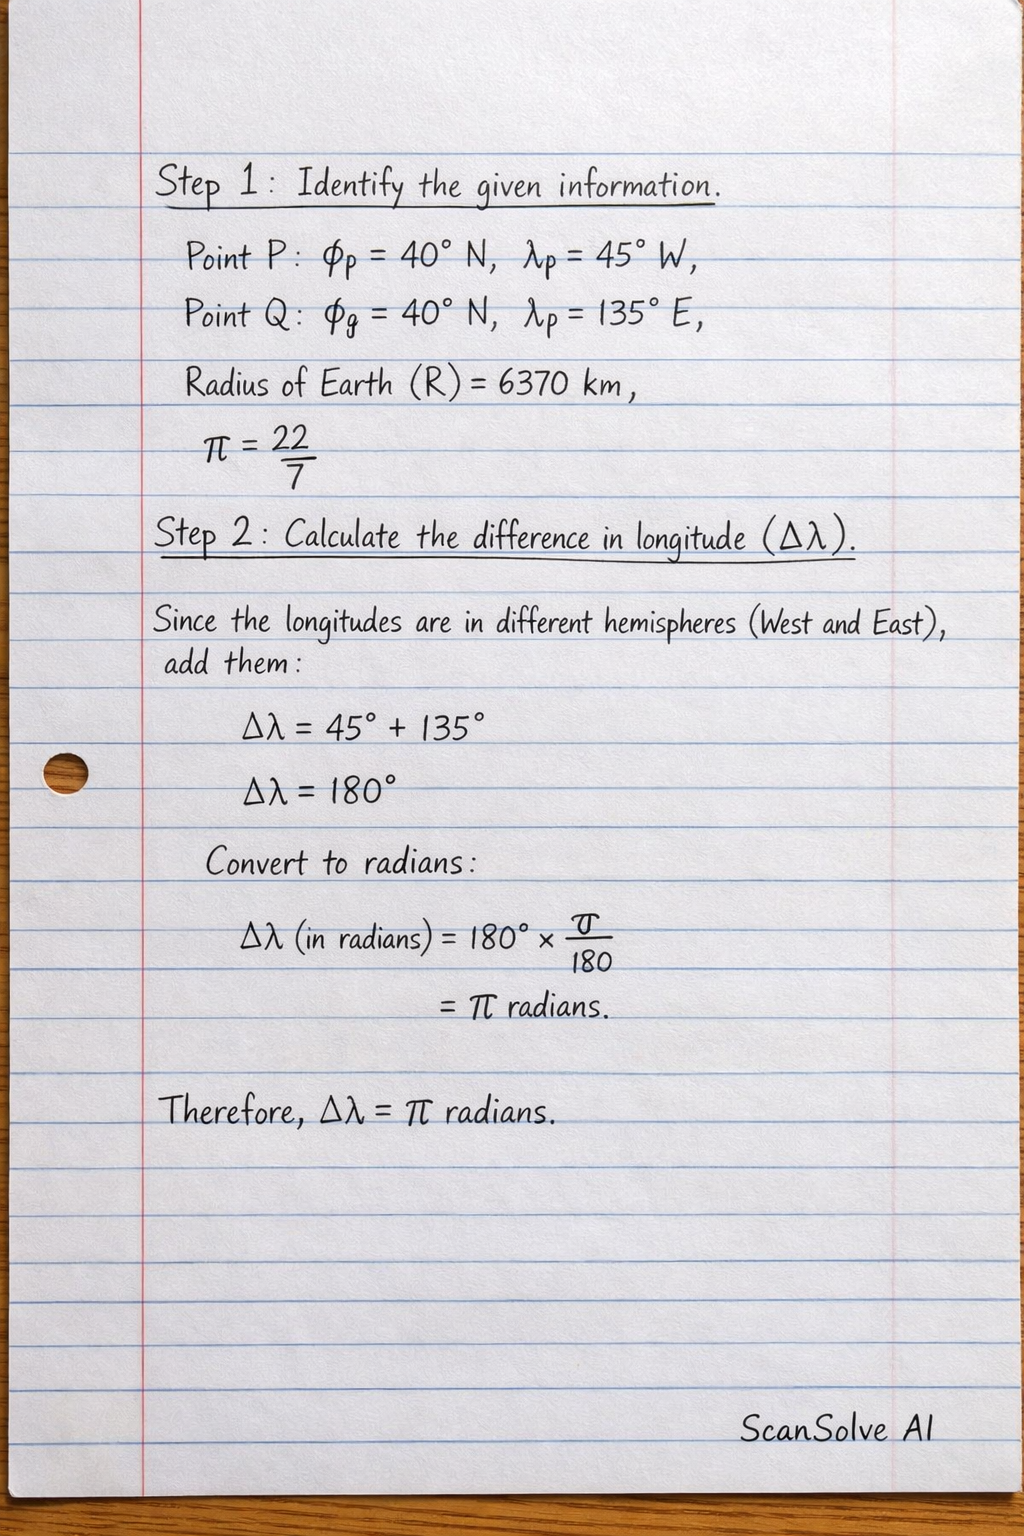 Step 1: Identify the given information.
Point P: ϕp = 40° N, λp = 45° W,
Point Q: ϕg = 40° N, λp = 135° E,
Radius of Earth (R) = 6370 km,
π = 22/7
Step 2: Calculate the difference in longitude (Δλ).
Since the longitudes are in different hemispheres (West and East),
add them:
Δλ = 45° + 135°
Δλ = 180°
Convert to radians:
Δλ (in radians) = 180° × ϖ/180
= π radians.
Therefore, Δλ = π radians.
ScanSolve AI